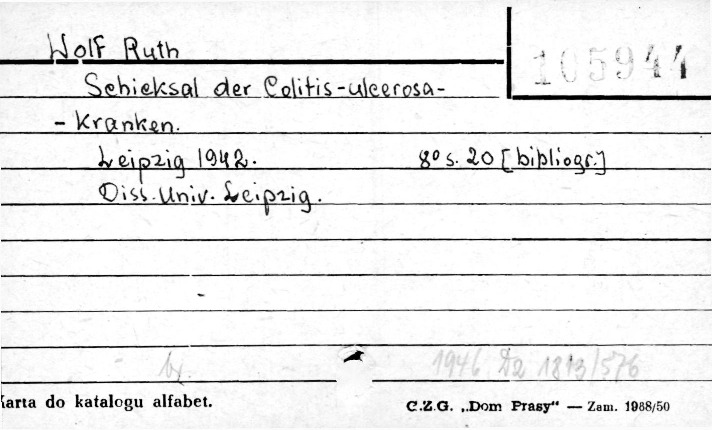 Wolf Ruth
105944
Schicksal der Colitis-ulcerosa-
- Kranken.
Leipzig 1942. 8º s. 20 [bibliogr.]
Diss. Univ. Leipzig.
1946 Da 1813/576
Karta do katalogu alfabet.
C.Z.G. „Dom Prasy“ — Zam. 1968/50